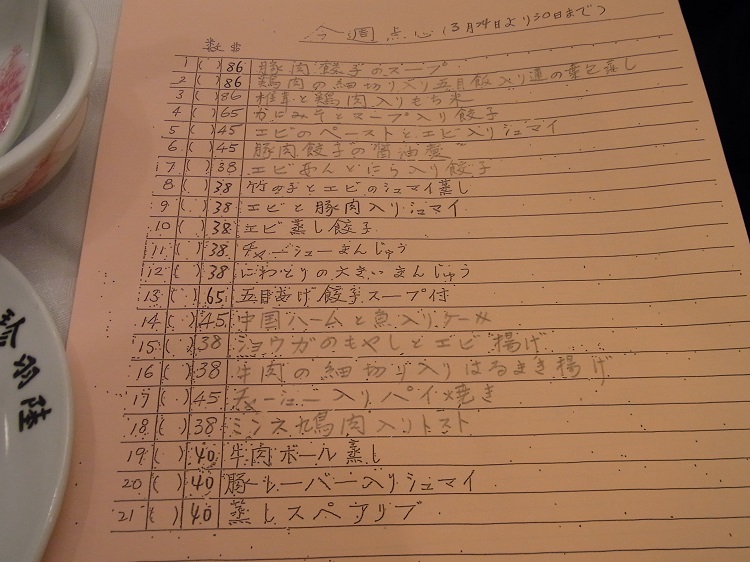 今週点心(3月24日より30日まで)
数 $
1 ( ) 86 豚肉餃子のスープ
2 ( ) 86 鶏肉の細切り入り五目飯入り蓮の葉包蒸し
3 ( ) 86 椎茸と鶏肉入りもち米
4 ( ) 65 かにみそとスープ入り餃子
5 ( ) 45 エビのペーストとエビ入りシュマイ
6 ( ) 45 豚肉餃子の醤油
7 ( ) 38 エビあんとにら入り餃子
8 ( ) 38 竹の子とエビのシュマイ蒸し
9 ( ) 38 エビと豚肉入りシュマイ
10 ( ) 38 エビ蒸し餃子
11 ( ) 38 チャーシューまんじゅう
12 ( ) 38 にわとりの大きいまんじゅう
13 ( ) 65 五目あげ餃子スープ付
14 ( ) 45 中国ハームと魚入りケーキ
15 ( ) 38 ショウガのもやしとエビ揚げ
16 ( ) 38 牛肉の細切り入りはるまき揚げ
17 ( ) 45 チャーシュー入りパイ焼き
18 ( ) 38 ミンス鳩肉入りトスト
19 ( ) 40 牛肉ボール蒸し
20 ( ) 40 豚レーバー入りシュマイ
21 ( ) 40 蒸しスペアリブ
陸羽